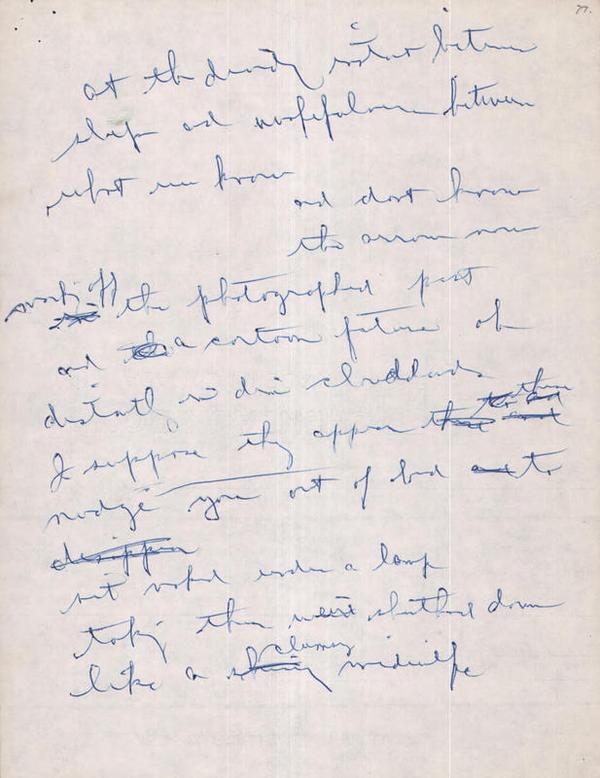 at the dividing instant between
sleep and wakefulness between
what we know
and dont know
the arrow now
the photographed past
and a cartoon future of
distantly in dim cloudlands
I suppose they appear
nudge you out of bed to
disappear
sit naked under a lamp
taking them down
like a clumsy midwife